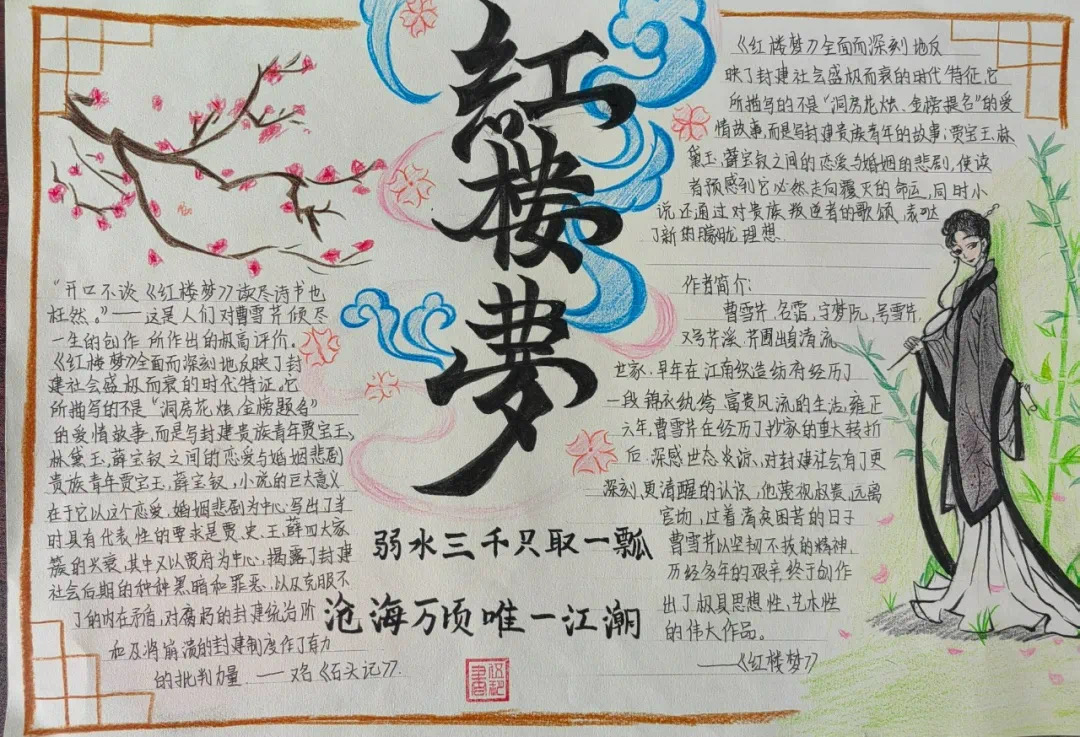 红楼梦
"开口不谈《红楼梦》读尽诗书也
枉然。"——这是人们对曹雪芹倾尽
一生的创作所作出的极高评价。
《红楼梦》全面而深刻地反映了封
建社会盛极而衰的时代特征,它
所描写的不是"洞房花烛、金榜题名"
的爱情故事,而是写封建贵族青年贾宝玉、
林黛玉、薛宝钗之间的恋爱与婚姻悲剧
贵族青年贾宝玉、薛宝钗,小说的巨大意义
在于它以这个恋爱、婚姻悲剧为中心,写出了当
时具有代表性的要求是贾、史、王、薛四大家
簇的兴衰,其中又以贾府为中心,揭露了封建
社会后期的种种黑暗和罪恶,以及克服不
了的内在矛盾,对腐朽的封建统治阶
和及将崩溃的封建制度作了有力
的批判力量.——又名《石头记》.
弱水三千只取一瓢
沧海万顷唯一江潮
《红楼梦》全面而深刻地反
映了封建社会盛极而衰的时代特征,它
所描写的不是"洞房花烛、金榜提名"的爱
情故事,而是写封建贵族青年的故事;贾宝玉、林
黛玉、薛宝钗之间的恋爱与婚姻的悲剧,使读
者预感到它必然走向覆灭的命运,同时小
说还通过对贵族叛逆者的歌颂,表达
了新的朦胧理想.
作者简介:
曹雪芹,名霑,字梦阮,号雪芹,
又号芹溪、芹圃出身清流
世家,早年在江南织造纺府经历了
一段锦衣纨绔、富贵风流的生活,雍正
六年,曹雪芹在经历了抄家的重大转折
后,深感世态炎凉,对封建社会有了更
深刻、更清醒的认识,他蔑视权贵,远离
官场,过着清贫困苦的日子
曹雪芹以坚韧不拔的精神,
历经多年的艰辛,终于创作
出了极具思想性、艺术性
的伟大作品。
——《红楼梦》